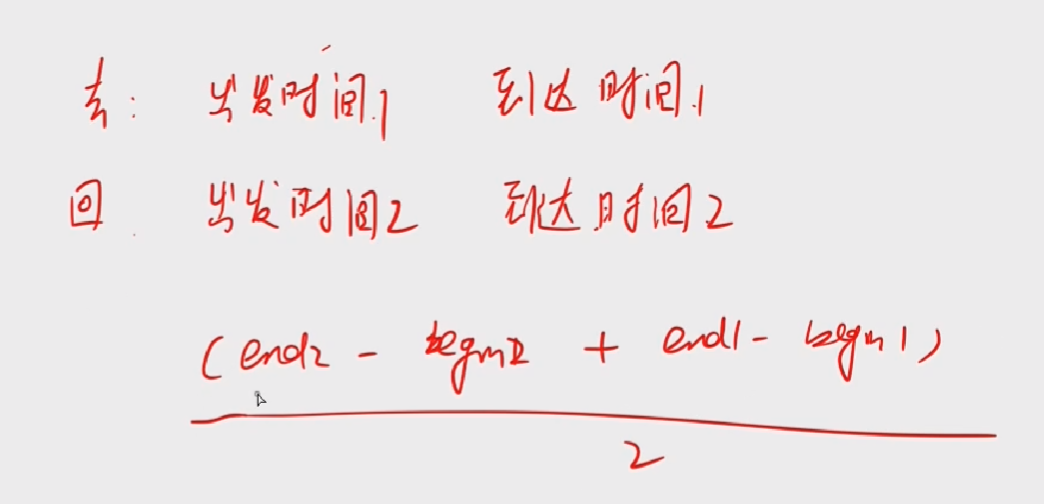 去: 出发时间1 到达时间1
回 出发时间2 到达时间2
(end2 - begin2 + end1 - begin1)
2